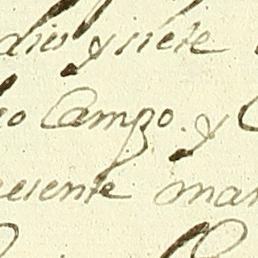 dies y siete
eo Campo. y C
resente man